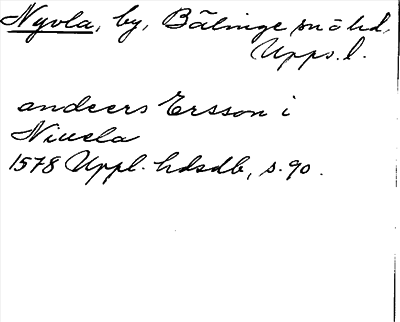 Nyvla, by, Bälinge sn o hd,
Upps. l.
anders Ersson i
Niuela
1578 Uppl. hdsdb, s. 90.